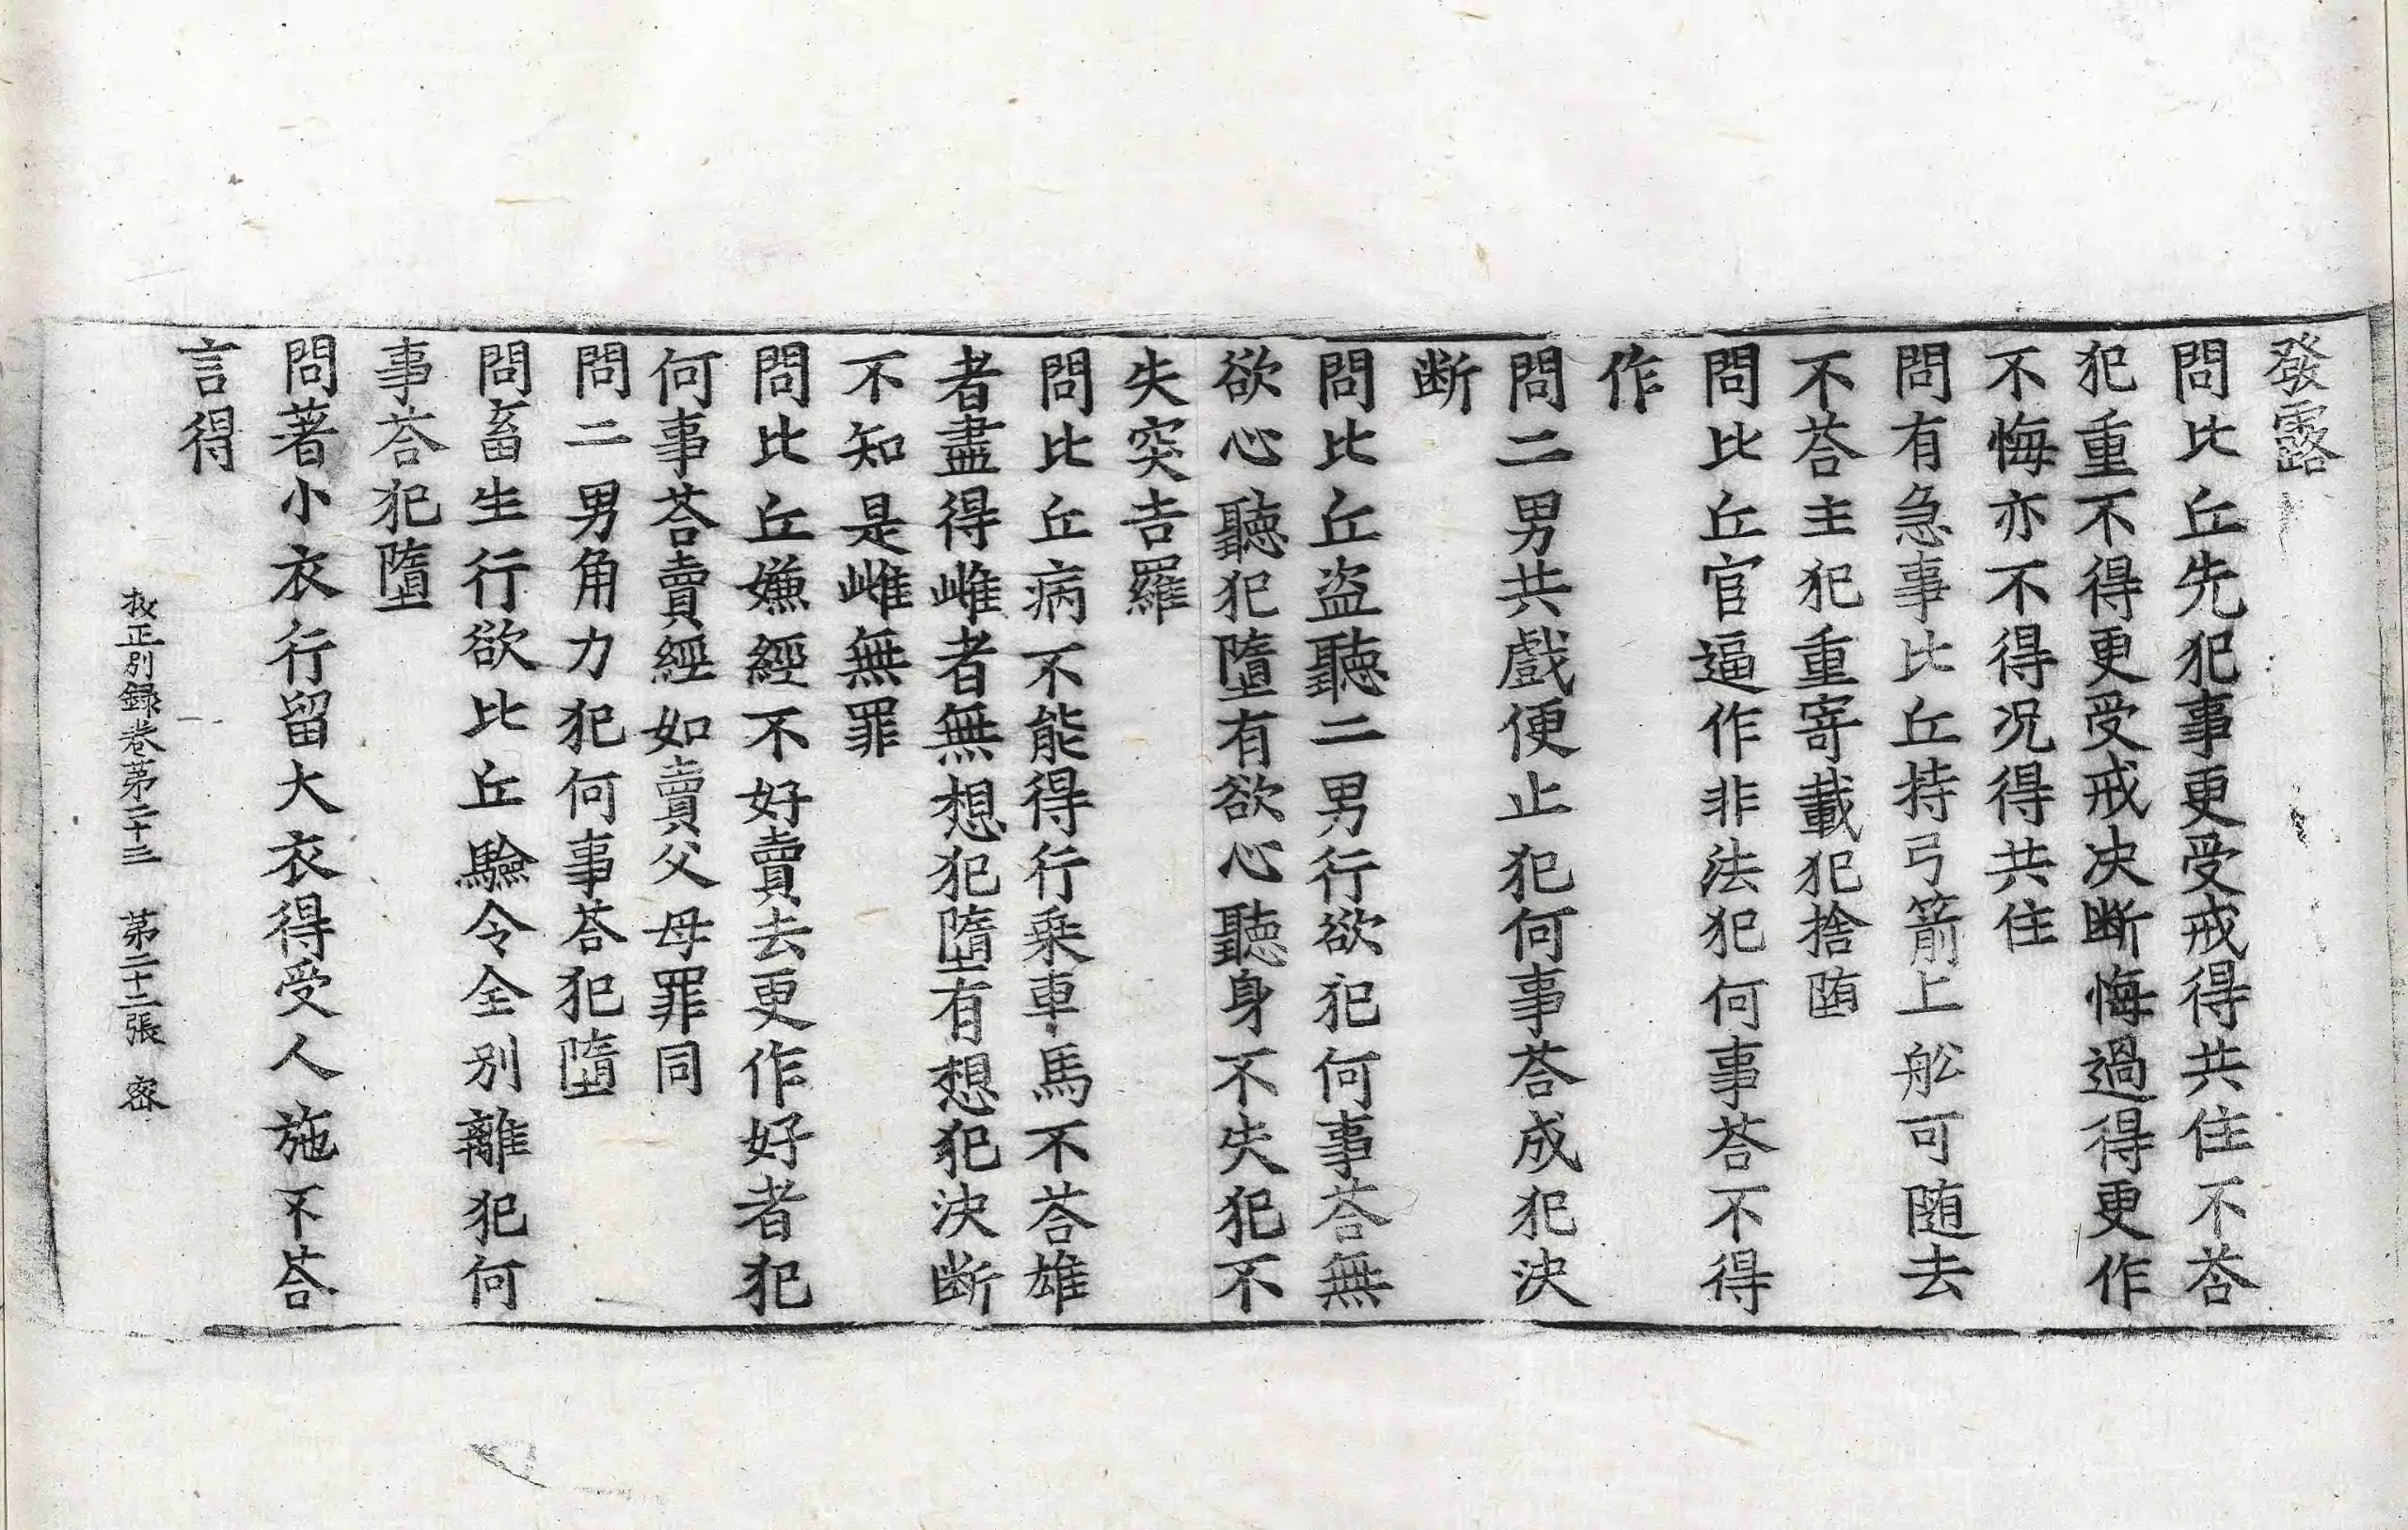 發露
問比丘先犯事更受戒得共住不荅
犯重不得更受戒決断悔過得更作
不悔亦不得况得共住
問有急事比丘持弓箭上舩可随去
不荅主犯重寄載犯捨堕
問比丘官逼作非法犯何事荅不得
作
問二男共戲便止犯何事荅成犯決
断
問比丘盗聽二男行欲犯何事荅無
欲心聽犯墮有欲心聽身不失犯不
失突吉羅
問比丘病不能得行乗車馬不荅雄
者盡得雌者無想犯墮有想犯決断
不知是雌無罪
問比丘嫌經不好賣去更作好者犯
何事荅賣經如賣父母罪同
問二男角力犯何事荅犯墮
問畜生行欲比丘驗令全别離犯何
事荅犯墮
問著小衣行留大衣得受人施不荅
言得
挍正別録卷苐二十三 苐二十二張 宻